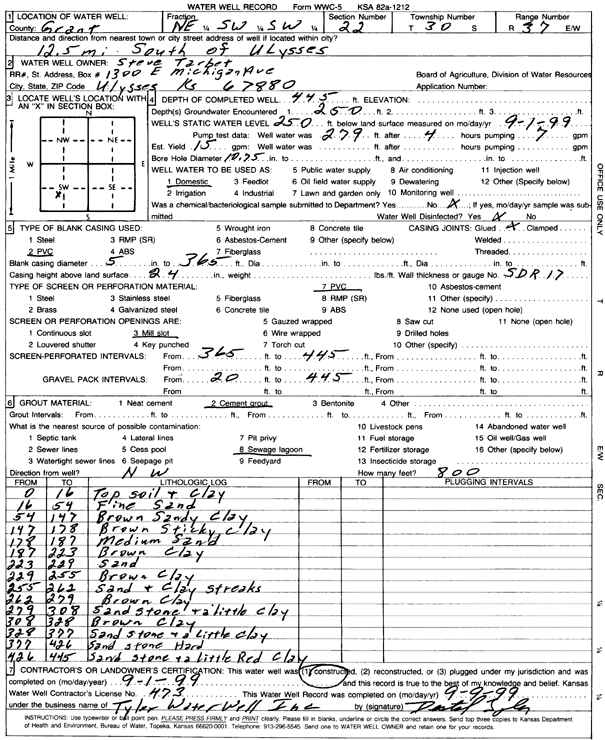 WATER WELL RECORD Form WWC-5 KSA 82a-1212
1 LOCATION OF WATER WELL: Fraction Section Number Township Number Range Number
County: Grant NE ¼ SW ¼ SW ¼ 22 T 30 S R 37 E/W
Distance and direction from nearest town or city street address of well if located within city?
12.5 mi. South of Ulysses
2 WATER WELL OWNER: Steve Tarbet
RR#, St. Address, Box # 1300 E Michigan Ave Board of Agriculture, Division of Water Resources
City, State, ZIP Code Ulysses Ks 67880 Application Number:
3 LOCATE WELL'S LOCATION WITH AN "X" IN SECTION BOX:
N
NW NE
W E
SW SE
X
S
1 Mile
4 DEPTH OF COMPLETED WELL 445 ft. ELEVATION:
Depth(s) Groundwater Encountered 1. 250 ft. 2. ft. 3. ft.
WELL'S STATIC WATER LEVEL 250 ft. below land surface measured on mo/day/yr 9-1-99
Pump test data: Well water was 279 ft. after 4 hours pumping 7 gpm
Est. Yield 15 gpm: Well water was ft. after hours pumping gpm
Bore Hole Diameter 10.75 in. to ft., and in. to ft.
WELL WATER TO BE USED AS: 5 Public water supply 8 Air conditioning 11 Injection well
1 Domestic 3 Feedlot 6 Oil field water supply 9 Dewatering 12 Other (Specify below)
2 Irrigation 4 Industrial 7 Lawn and garden only 10 Monitoring well
Was a chemical/bacteriological sample submitted to Department? Yes No X ; If yes, mo/day/yr sample was submitted
Water Well Disinfected? Yes X No
5 TYPE OF BLANK CASING USED: 5 Wrought iron 8 Concrete tile CASING JOINTS: Glued X Clamped
1 Steel 3 RMP (SR) 6 Asbestos-Cement 9 Other (specify below) Welded
2 PVC 4 ABS 7 Fiberglass Threaded
Blank casing diameter 5 in. to 365 ft., Dia in. to ft., Dia in. to ft.
Casing height above land surface 24 in., weight lbs./ft. Wall thickness or gauge No. SDR 17
TYPE OF SCREEN OR PERFORATION MATERIAL: 7 PVC 10 Asbestos-cement
1 Steel 3 Stainless steel 5 Fiberglass 8 RMP (SR) 11 Other (specify)
2 Brass 4 Galvanized steel 6 Concrete tile 9 ABS 12 None used (open hole)
SCREEN OR PERFORATION OPENINGS ARE: 5 Gauzed wrapped 8 Saw cut 11 None (open hole)
1 Continuous slot 3 Mill slot 6 Wire wrapped 9 Drilled holes
2 Louvered shutter 4 Key punched 7 Torch cut 10 Other (specify)
SCREEN-PERFORATED INTERVALS: From 365 ft. to 445 ft., From ft. to ft.
From ft. to ft., From ft. to ft.
GRAVEL PACK INTERVALS: From 20 ft. to 445 ft., From ft. to ft.
From ft. to ft., From ft. to ft.
6 GROUT MATERIAL: 1 Neat cement 2 Cement grout 3 Bentonite 4 Other
Grout Intervals: From ft. to ft., From ft. to ft., From ft. to ft.
What is the nearest source of possible contamination: 10 Livestock pens 14 Abandoned water well
1 Septic tank 4 Lateral lines 7 Pit privy 11 Fuel storage 15 Oil well/Gas well
2 Sewer lines 5 Cess pool 8 Sewage lagoon 12 Fertilizer storage 16 Other (specify below)
3 Watertight sewer lines 6 Seepage pit 9 Feedyard 13 Insecticide storage
Direction from well? NW How many feet? 800
FROM TO LITHOLOGIC LOG FROM TO PLUGGING INTERVALS
0 16 Top soil + Clay
16 54 Fine Sand
54 147 Brown Sandy Clay
147 178 Brown Sticky Clay
178 187 Medium Sand
187 223 Brown Clay
223 229 Sand
229 255 Brown Clay
255 262 Sand + Clay streaks
262 279 Brown Clay
279 308 Sand stone + a little Clay
308 328 Brown Clay
328 377 Sand stone + a little Clay
377 426 Sand stone Hard
426 445 Sand stone + a little Red Clay
7 CONTRACTOR'S OR LANDOWNER'S CERTIFICATION: This water well was (1) constructed, (2) reconstructed, or (3) plugged under my jurisdiction and was
completed on (mo/day/year) 9-1-99 and this record is true to the best of my knowledge and belief. Kansas
Water Well Contractor's License No. 473 This Water Well Record was completed on (mo/day/yr) 9-9-99
under the business name of Tyler Water Well Inc by (signature)
INSTRUCTIONS: Use typewriter or ball point pen. PLEASE PRESS FIRMLY and PRINT clearly. Please fill in blanks, underline or circle the correct answers. Send top three copies to Kansas Department
of Health and Environment, Bureau of Water, Topeka, Kansas 66620-0001. Telephone: 913-296-5545. Send one to WATER WELL OWNER and retain one for your records.
OFFICE USE ONLY
T
R
E/W
SEC.
¼
¼
¼